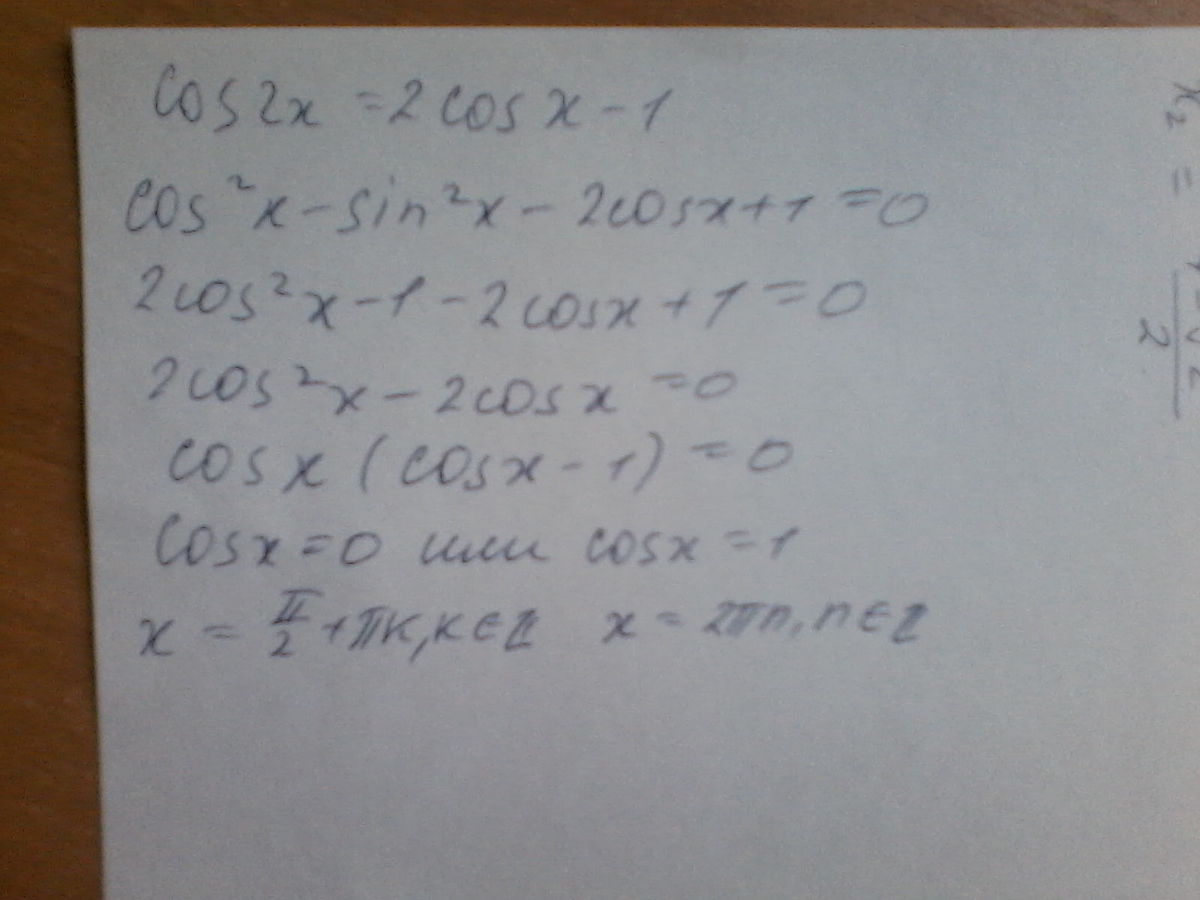 cos2x = 2cosx - 1
cos²x - sin²x - 2cosx + 1 = 0
2cos²x - 1 - 2cosx + 1 = 0
2cos²x - 2cosx = 0
cosx (cosx - 1) = 0
cosx = 0 или cosx = 1
x = π/2 + πk, k ∈ ℤ x = 2πn, n ∈ ℤ
x₂ =